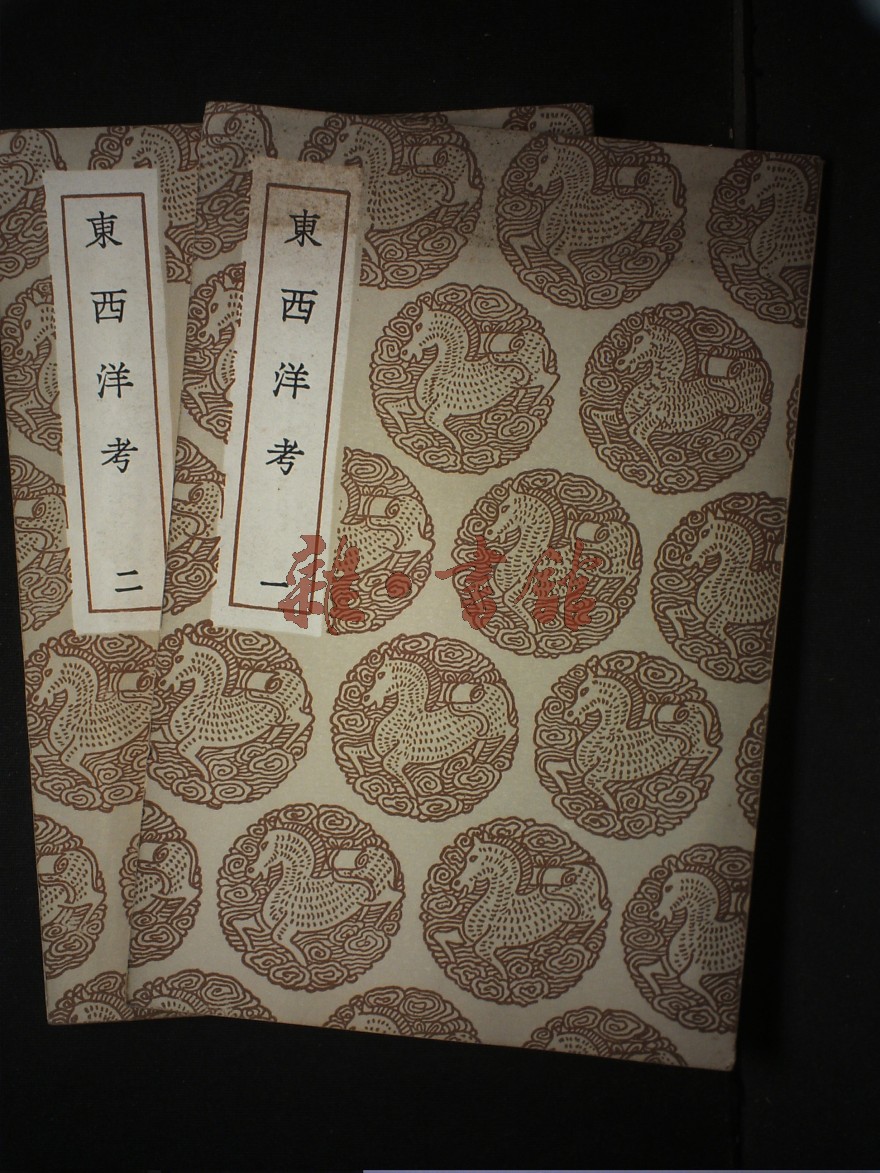 東西洋考 一
東西洋考 二
雜·書館